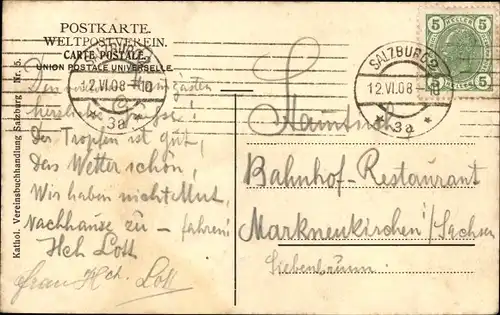 POSTKARTE.
WELTPOSTVEREIN.
CARTE POSTALE.
UNION POSTALE UNIVERSELLE.
SALZBURG 2
12.VI.08-10
* 3a *
SALZBURG 2
12.VI.08-
* 3a *
5 HELLER 5
5 5
Kathol. Vereinsbuchhandlung Salzburg Nr. 5.
Den
herzliche Grüsse!
Der Tropfen ist gut,
das Wetter schön,
Wir haben nicht Mut,
Nachhause zu – fahren!
Hch Lott
Frau Hch. Lott
Stammtisch
Bahnhof-Restaurant
Markneukirchen i/Sachsen
Siebenbrunn.